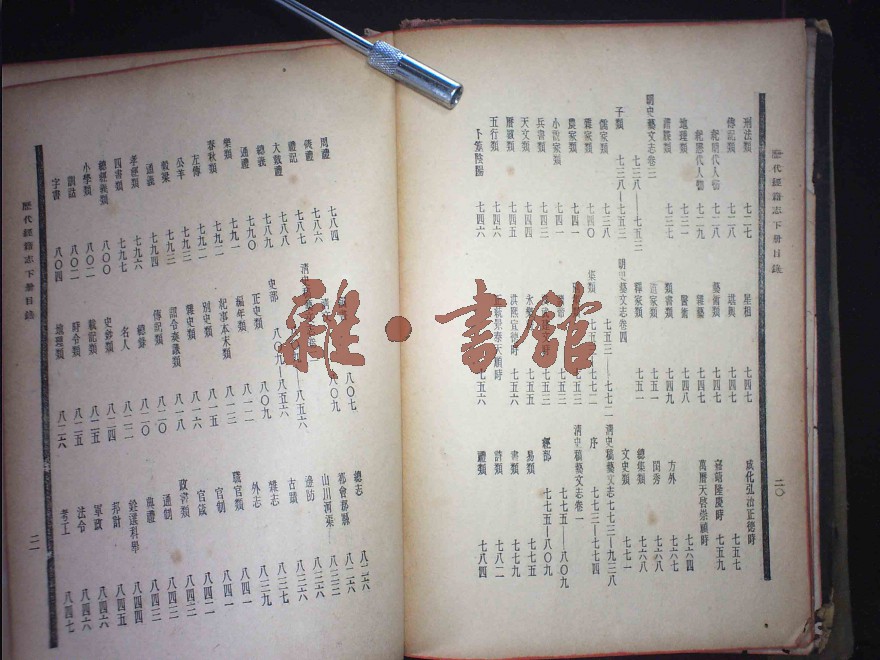 歷代經籍志下冊目錄
二〇
刑法類 七二七
傳記類 七二八
紀明代人物 七二八
紀歷代人物 七二九
地理類
譜牒類
明史藝文志卷三 七三八—七五三
子類 七三八—七五三
儒家類 七三八
雜家類 七四〇
農家類 七四一
小說家類
兵書類 七四三
天文類 七四四
曆數類 七四五
五行類
卜筮陰陽 七四六
星相 七四七
堪輿 七四七
藝術類 七四七
雜藝 七四七
醫術 七四八
類書類 七四九
道家類 七五一
釋家類
明史藝文志卷四 七五三—七七二
集類 七七二
洪熙宣德時 七五六
正統景泰天順時 七五六
成化弘治正德時 七五七
嘉靖隆慶時 七五九
萬曆天啓崇禎時 七六四
方外 七六七
閨秀 七六八
總集類 七六八
文史類 七七一
清史稿藝文志 七七三—九三八
序 七七三—七七四
清史稿藝文志卷一 七七五—八〇九
經部 七七五—八〇九
易類 七七五
書類 七七九
詩類 七八二
禮類 七八四
周禮 七八四
儀禮 七八六
禮記 七八七
大戴禮 七八八
總義 七八九
通禮 七九〇
樂類 七九一
春秋類 七九二
左傳 七九二
公羊 七九三
穀梁 七九三
通義 七九四
孝經類 七九七
四書類 七九七
總經義類
小學類 八〇二
訓詁 八〇二
字書 八〇四
八〇七
八〇九
八五六
史部 八〇九—八五六
正史類 八〇九
編年類 八一二
紀事本末類 八一三
別史類 八一五
雜史類 八一六
詔令奏議類 八一八
傳記類 八二〇
總錄 八二〇
名人 八二三
史鈔類 八二四
載記類 八二五
時令類 八二五
地理類 八二六
總志 八二六
都會郡縣 八二六
山川河渠 八三三
邊防 八三六
古蹟 八三七
雜志 八三九
外志 八四一
職官類 八四一
官制 八四一
官箴 八四二
政書類 八四二
通制 八四二
典禮 八四三
銓選科舉 八四四
邦計 八四五
軍政 八四六
法令 八四六
考工 八四七
歷代經籍志下冊目錄
二一
雜·書館